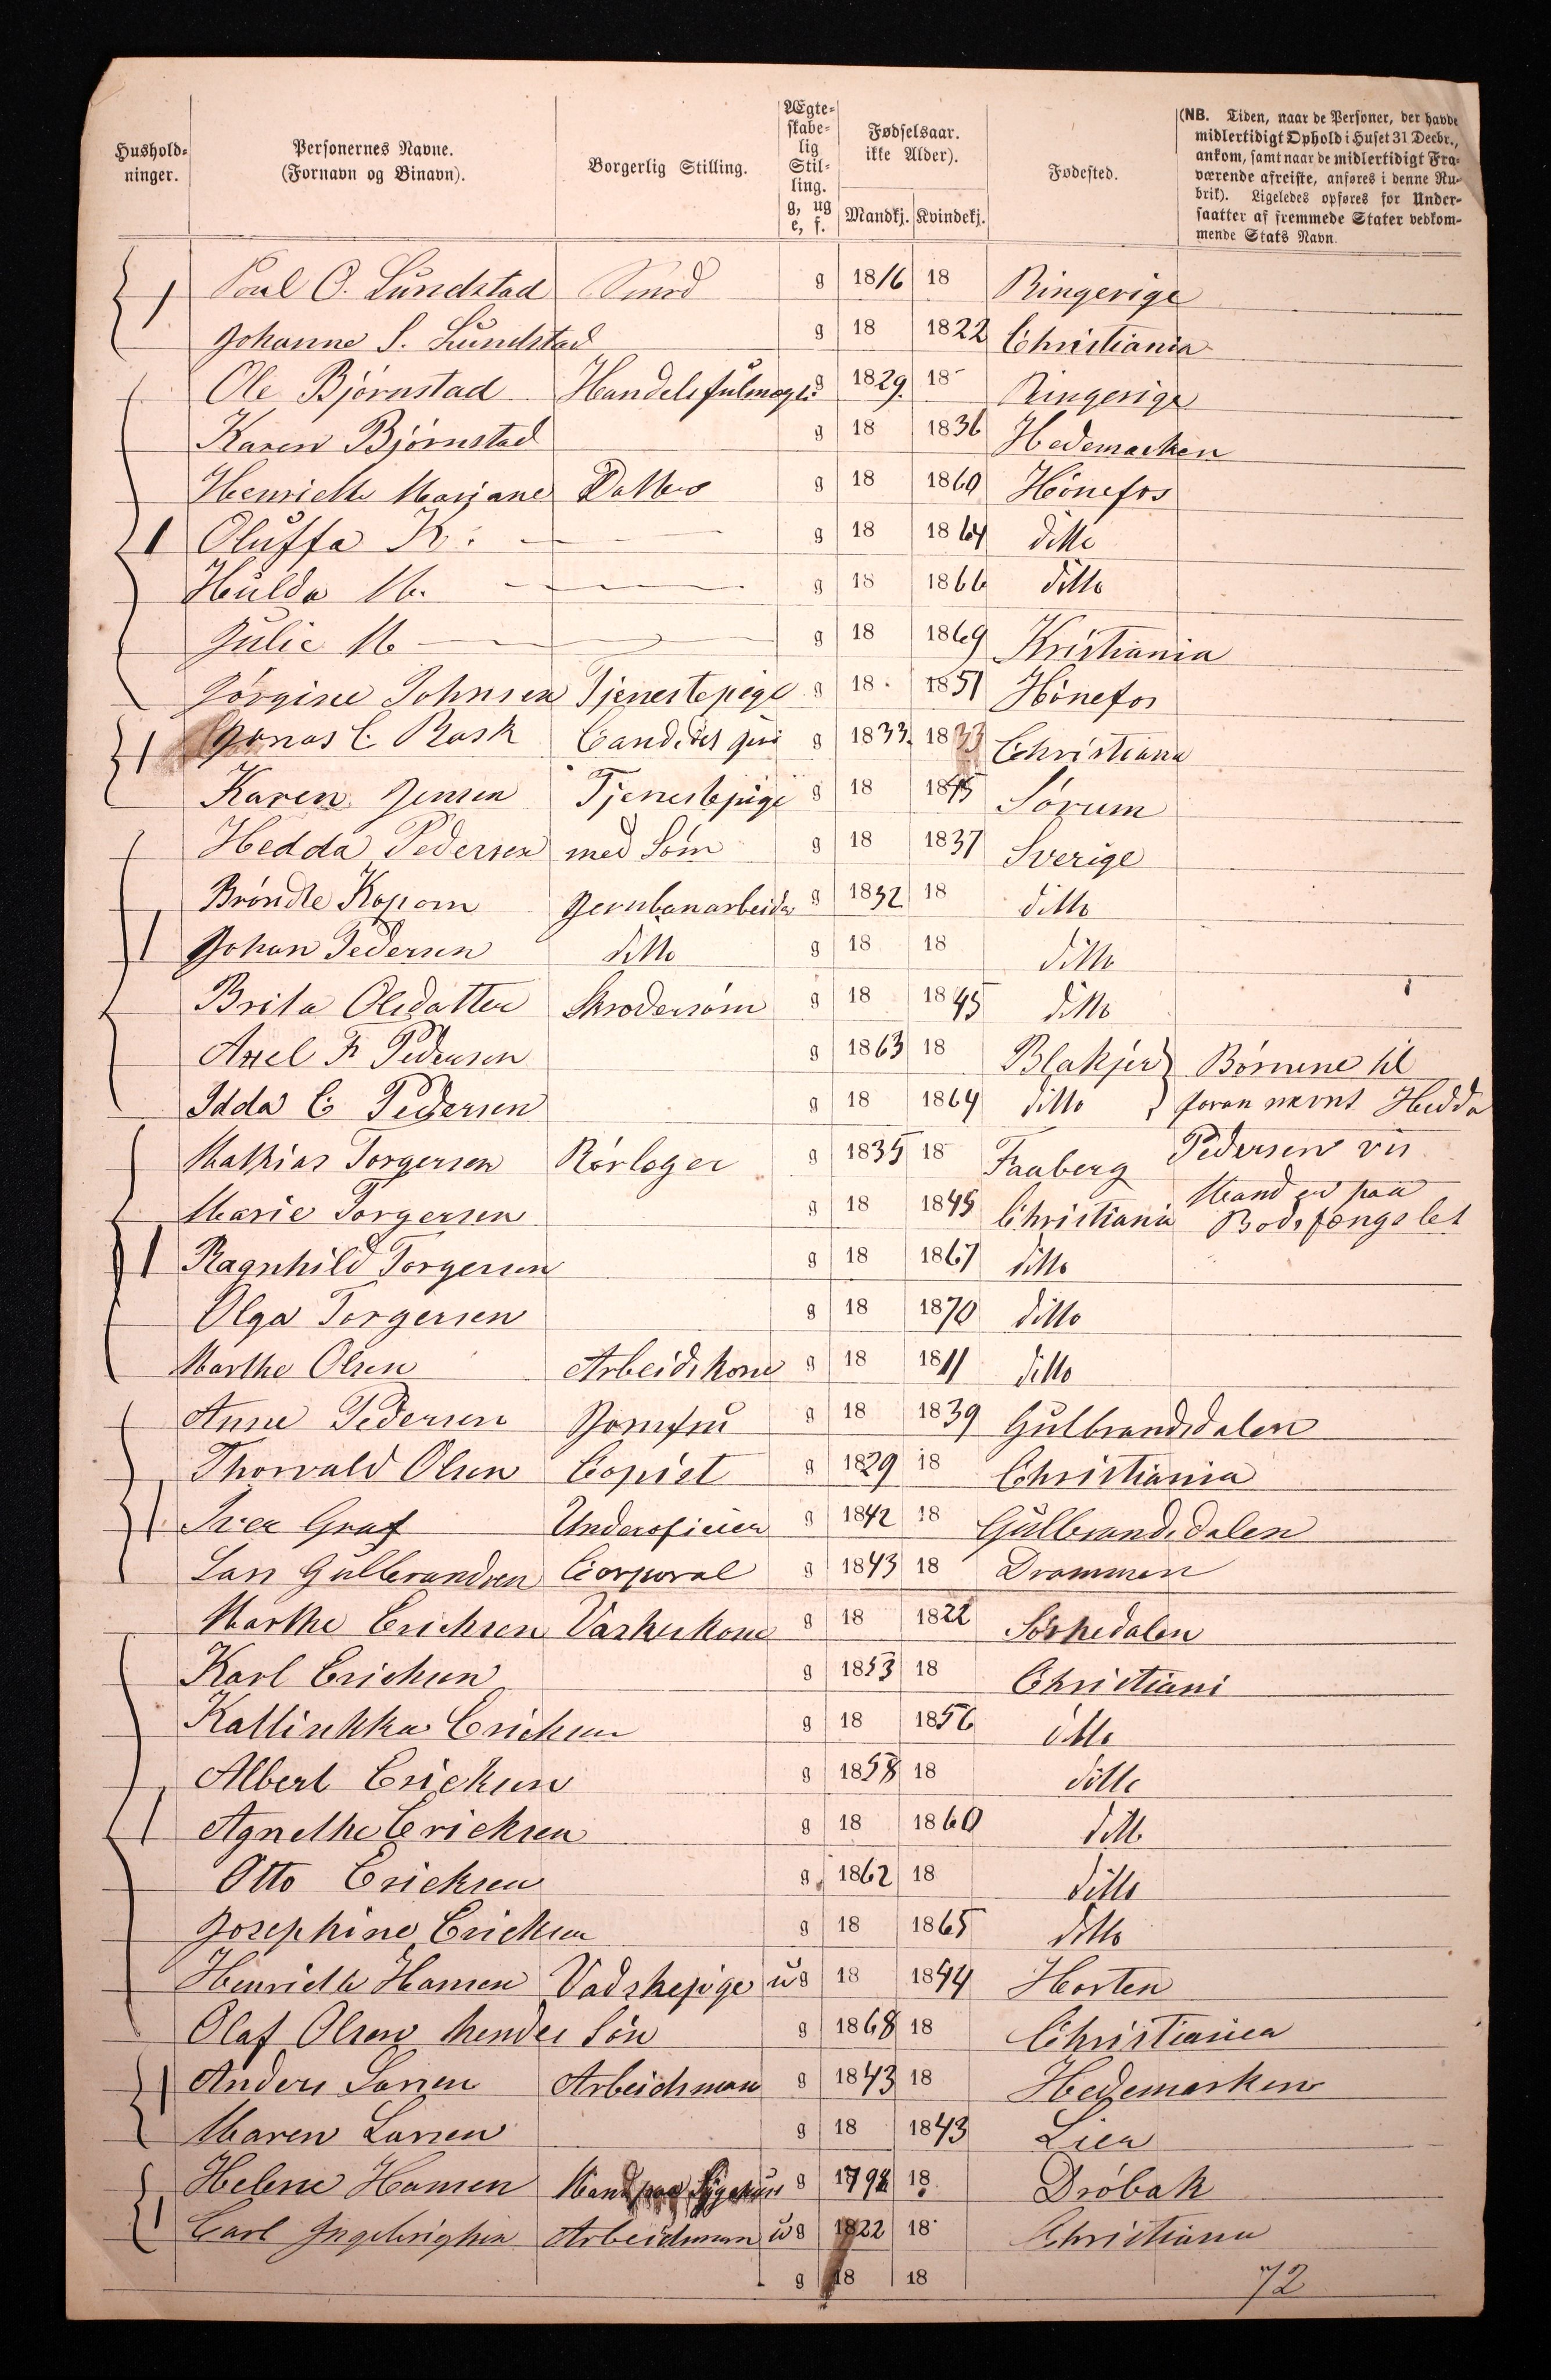 Hushold-
ninger.
Personernes Navne.
(Fornavn og Binavn).
Borgerlig Stilling.
Ægte-
skabe-
lig
Stil-
ling.
g, ug
e, f.
Fødselsaar.
ikke Alder).
Mandkj. Kvindekj.
Fødested.
(NB. Tiden, naar de Personer, der havde
midlertidigt Ophold i Huset 31 Decbr.,
ankom, samt naar de midlertidigt Fra-
værende afreiste, anføres i denne Ru-
brik). Ligeledes opføres for Under-
saatter af fremmede Stater vedkom-
mende Stats Navn.
1 Poul O. Lundstad Smed g 1816 18 Ringerige
Johanne S. Lundstad g 18 1822 Christiania
Ole Bjørnstad Handelsfulmægti g 1829. 18 Ringerige
Karen Bjørnstad g 18 1836 Hedemarken
Henriette Marjane Datter g 18 1860 Hønefos
1 Oluffa K. g 18 1864 ditto
Hulda M. g 18 1866 ditto
Julie M g 18 1869 Kristiania
Jørgine Johnsen Tjenestepige g 18 1851 Hønefos
1 Jonas C. Rask Candidat juri g 1833. 1833 Christiana
Karen Jensen Tjenestepige g 18 1845 Sørum
Hedda Pedersen med Søm g 18 1837 Sverige
Brøndte Kopom Jernbanarbeider g 1832 18 ditto
1 Johan Pedersen ditto g 18 18 ditto
Brita Olsdatter Skrodersøm g 18 1845 ditto
Axel F. Pedersen g 1863 18 Blakjer } Børnene til
Idda C Pedersen g 18 1864 ditto } foran nævnt Hedda
Mathias Torgersen Rørleger g 1835 18 Faaberg Pedersen vis
Marie Torgersen g 18 1845 Christiania Mand er paa
Bodsfængslet
1 Ragnhild Torgersen g 18 1867 ditto
Olga Torgersen g 18 1870 ditto
Marthe Olsen Arbeidskone g 18 1811 ditto
Anne Pedersen Jomfru g 18 1839 Gulbrandsdalen
Thorvald Olsen Copist g 1829 18 Christiania
1 Iver Graf Underoficier g 1842 18 Gulbrandsdalen
Lars Gulbrandsen Corporal g 1843 18 Drammen
Marthe Erichsen Vaskerkone g 18 1822 Sørkedalen
Karl Erichsen g 1853 18 Christiani
Kattinkka Ericksen g 18 1856 ditto
Albert Ericksen g 1858 18 ditto
1 Agnethe Ericksen g 18 1860 ditto
Otto Ericksen g 1862 18 ditto
Josephine Ericksen g 18 1865 ditto
Henriette Hansen Vadskepige ug 18 1844 Horten
Olaf Olsen hendes Søn g 1868 18 Christiania
1 Anders Larsen Arbeidsman g 1843 18 Hedemarken
Maren Larsen g 18 1843 Lier
Helene Hansen Mand paa Sygehus g 1798 18 Drøbak
1 Carl Ingebrigtsen Arbeidsman ug 1822 18 Christiana
g 18 18
72